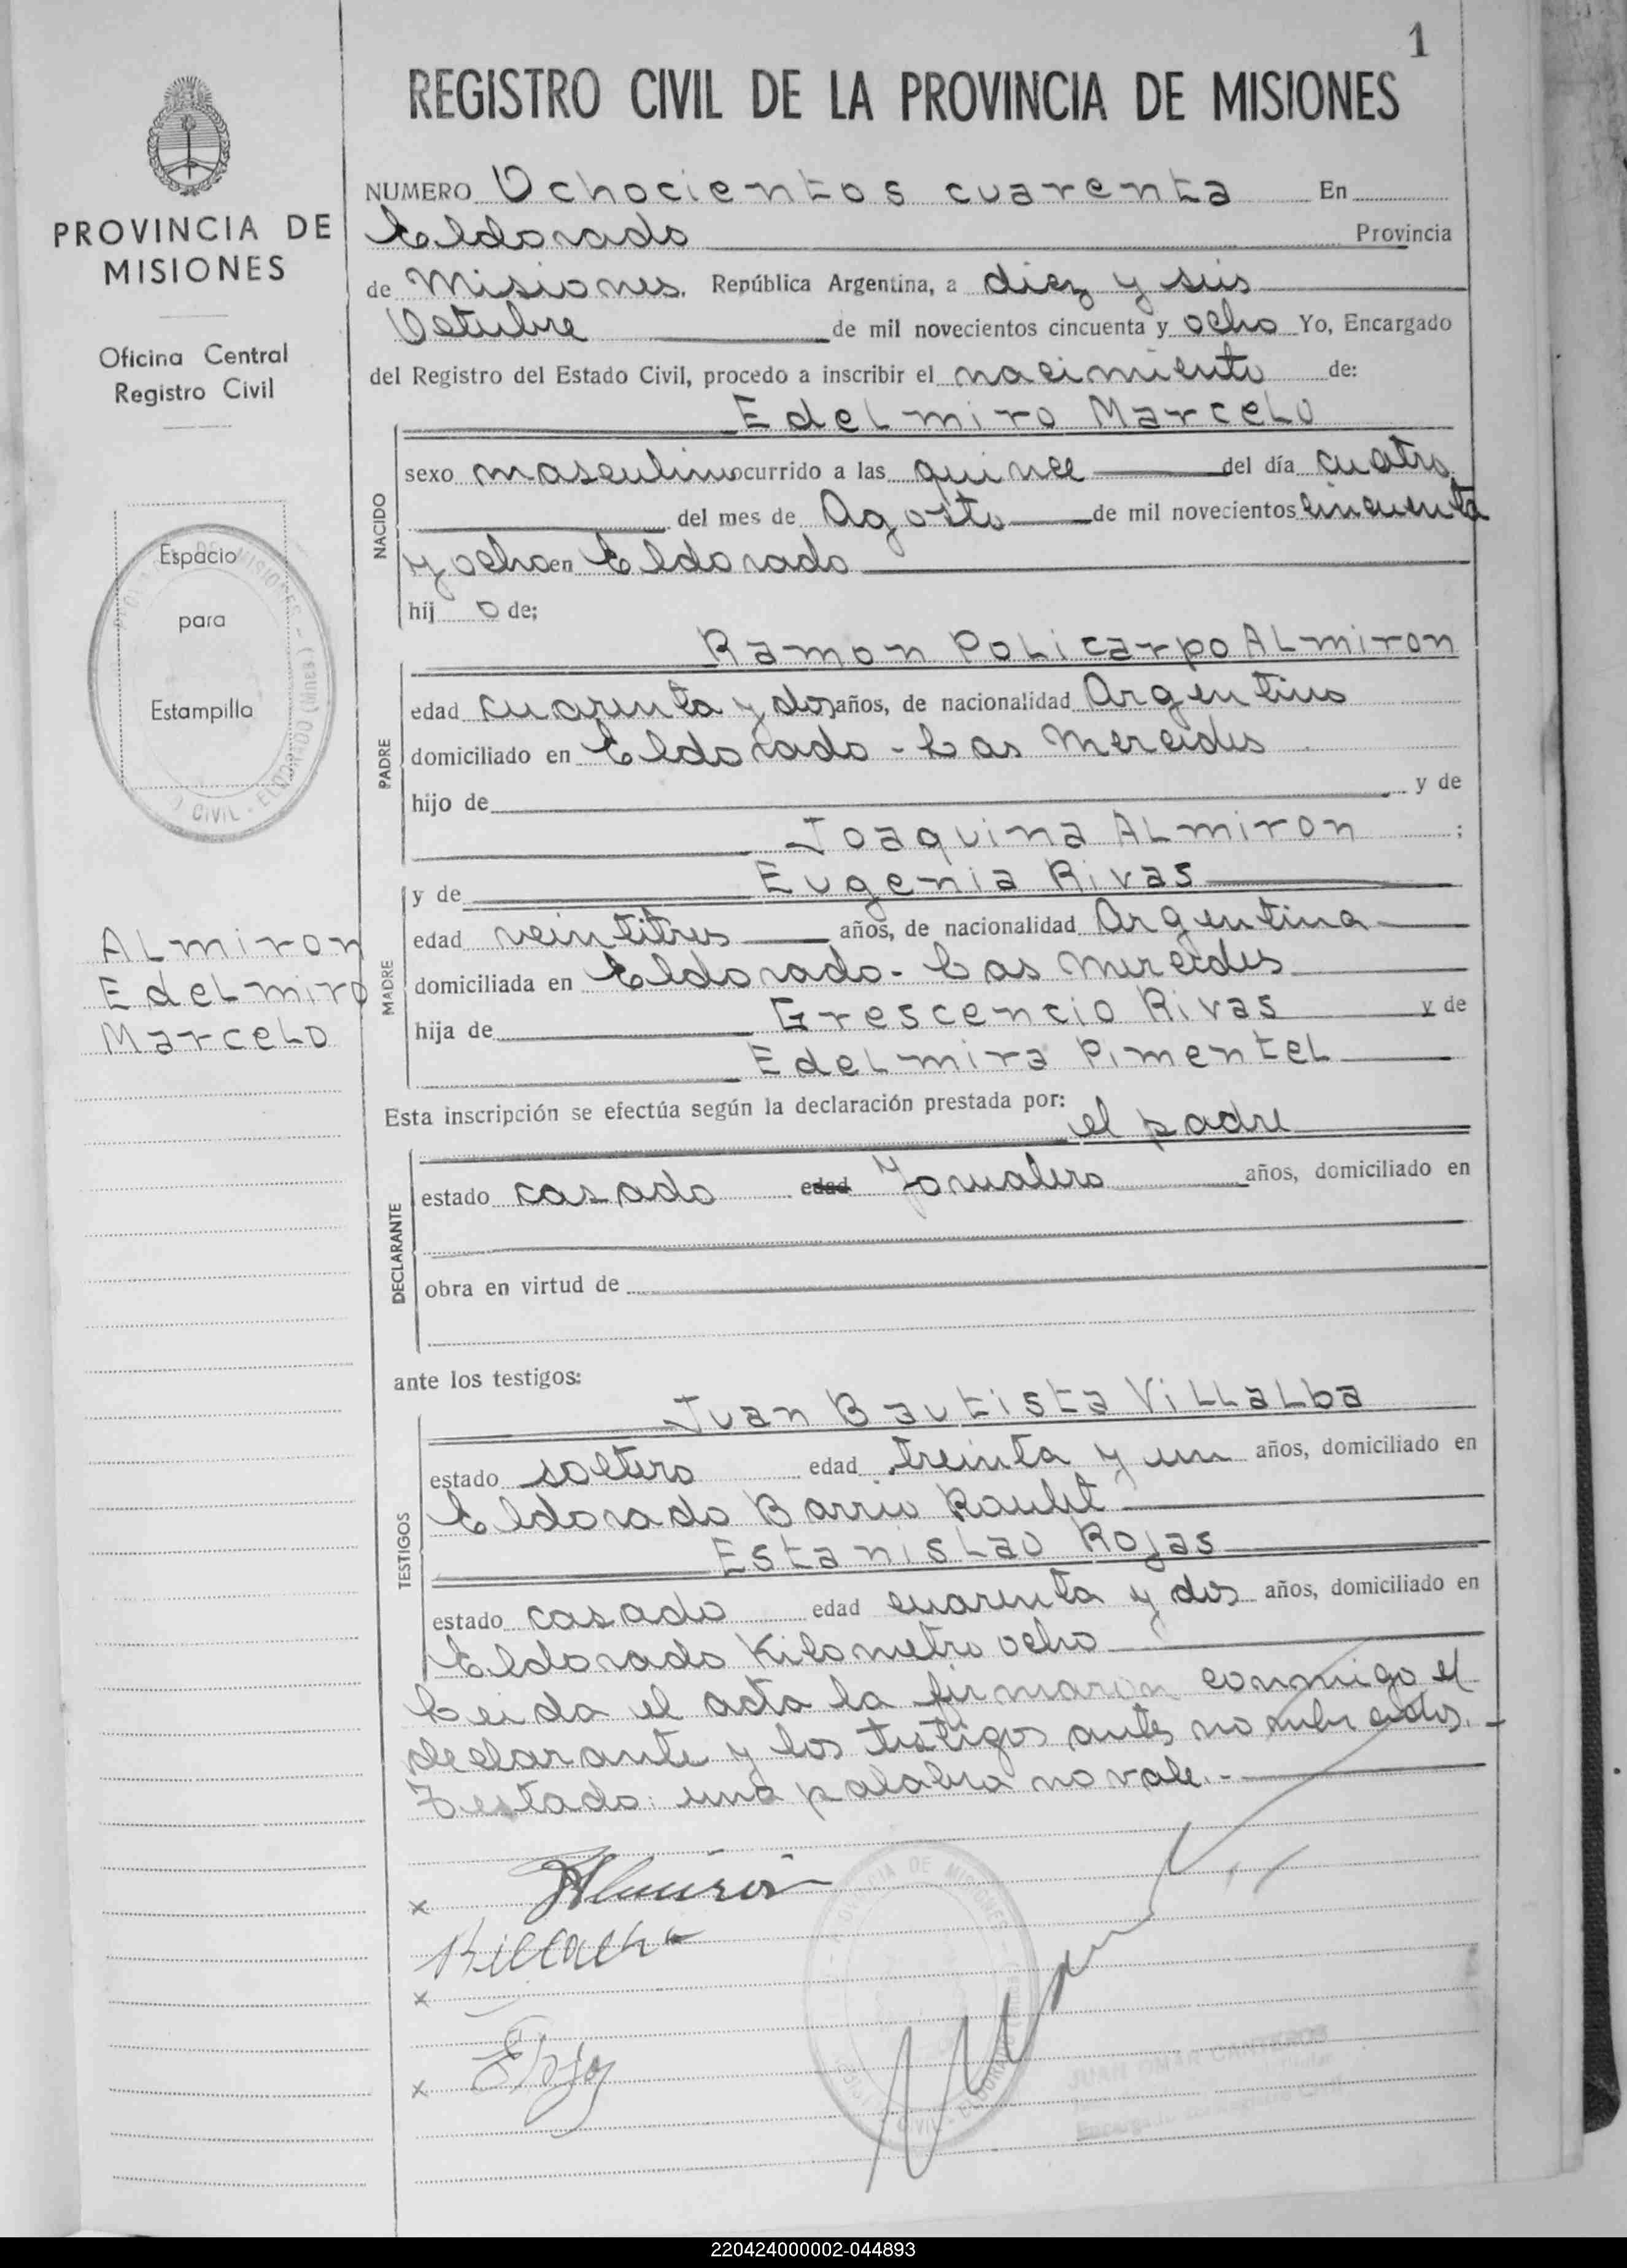 1
REGISTRO CIVIL DE LA PROVINCIA DE MISIONES
PROVINCIA DE
MISIONES
Oficina Central
Registro Civil
Espacio
para
Estampilla
ALmiron
EdeLmiro
MarceLo
NUMERO Ochocientos cuarenta En
Eldorado Provincia
de Misiones. República Argentina, a diez y seis
Octubre de mil novecientos cincuenta y ocho Yo, Encargado
del Registro del Estado Civil, procedo a inscribir el nacimiento de:
EdeLmiro MarceLo
NACIDO
sexo masculino ocurrido a las quince del día cuatro
del mes de Agosto de mil novecientos cincuenta
y ocho en Eldorado
hij o de;
Ramon PoLicarpo ALmiron
PADRE
edad cuarenta y dos años, de nacionalidad Argentino
domiciliado en Eldorado - Las Mercedes
hijo de y de
Joaquina ALmiron ;
MADRE
y de Eugenia Rivas
edad veintitres años, de nacionalidad Argentina
domiciliada en Eldorado - Las Mercedes
hija de Grescencio Rivas y de
EdeLmira PimenteL
Esta inscripción se efectúa según la declaración prestada por:
el padre
DECLARANTE
estado casado edad Jornalero años, domiciliado en
obra en virtud de
ante los testigos:
Juan Bautista ViLLaLba
TESTIGOS
estado soltero edad treinta y un años, domiciliado en
Eldorado Barrio
EstanisLao Rojas
estado casado edad cuarenta y dos años, domiciliado en
Eldorado Kilometro ocho
Leida el acta la firmaron conmigo el
declarante y los testigos antes nombrados.-
Testado: una palabra no vale.-
x Almiron
Villalba
x
x ERojas
JUAN OMAR CANTEROS
220424000002-044893